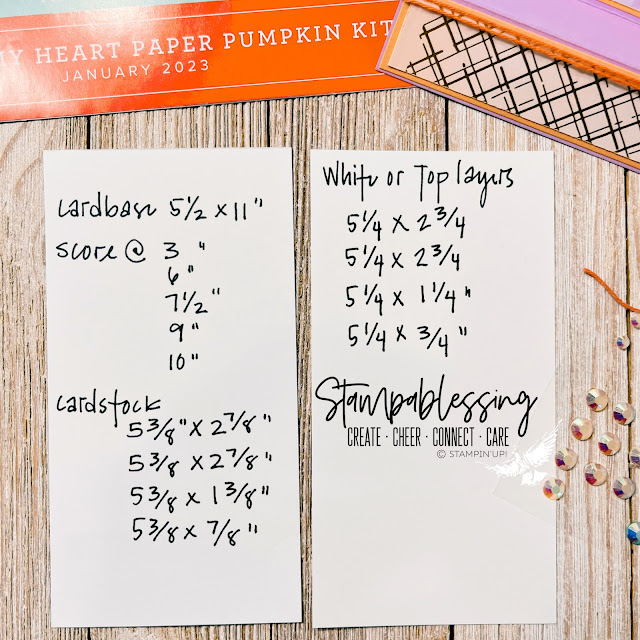 MY HEART PAPER PUMPKIN KIT
JANUARY 2023
Cardbase 5 1/2 x 11"
Score @ 3 "
6 "
7 1/2 "
9 "
10 "
Cardstock
5 3/8" x 2 7/8 "
5 3/8 x 2 7/8 "
5 3/8 x 1 3/8 "
5 3/8 x 7/8 "
White or Top layers
5 1/4 x 2 3/4
5 1/4 x 2 3/4
5 1/4 x 1 1/4 "
5 1/4 x 3/4 "
Stampablessing
CREATE · CHEER · CONNECT · CARE
© STAMPIN'UP!